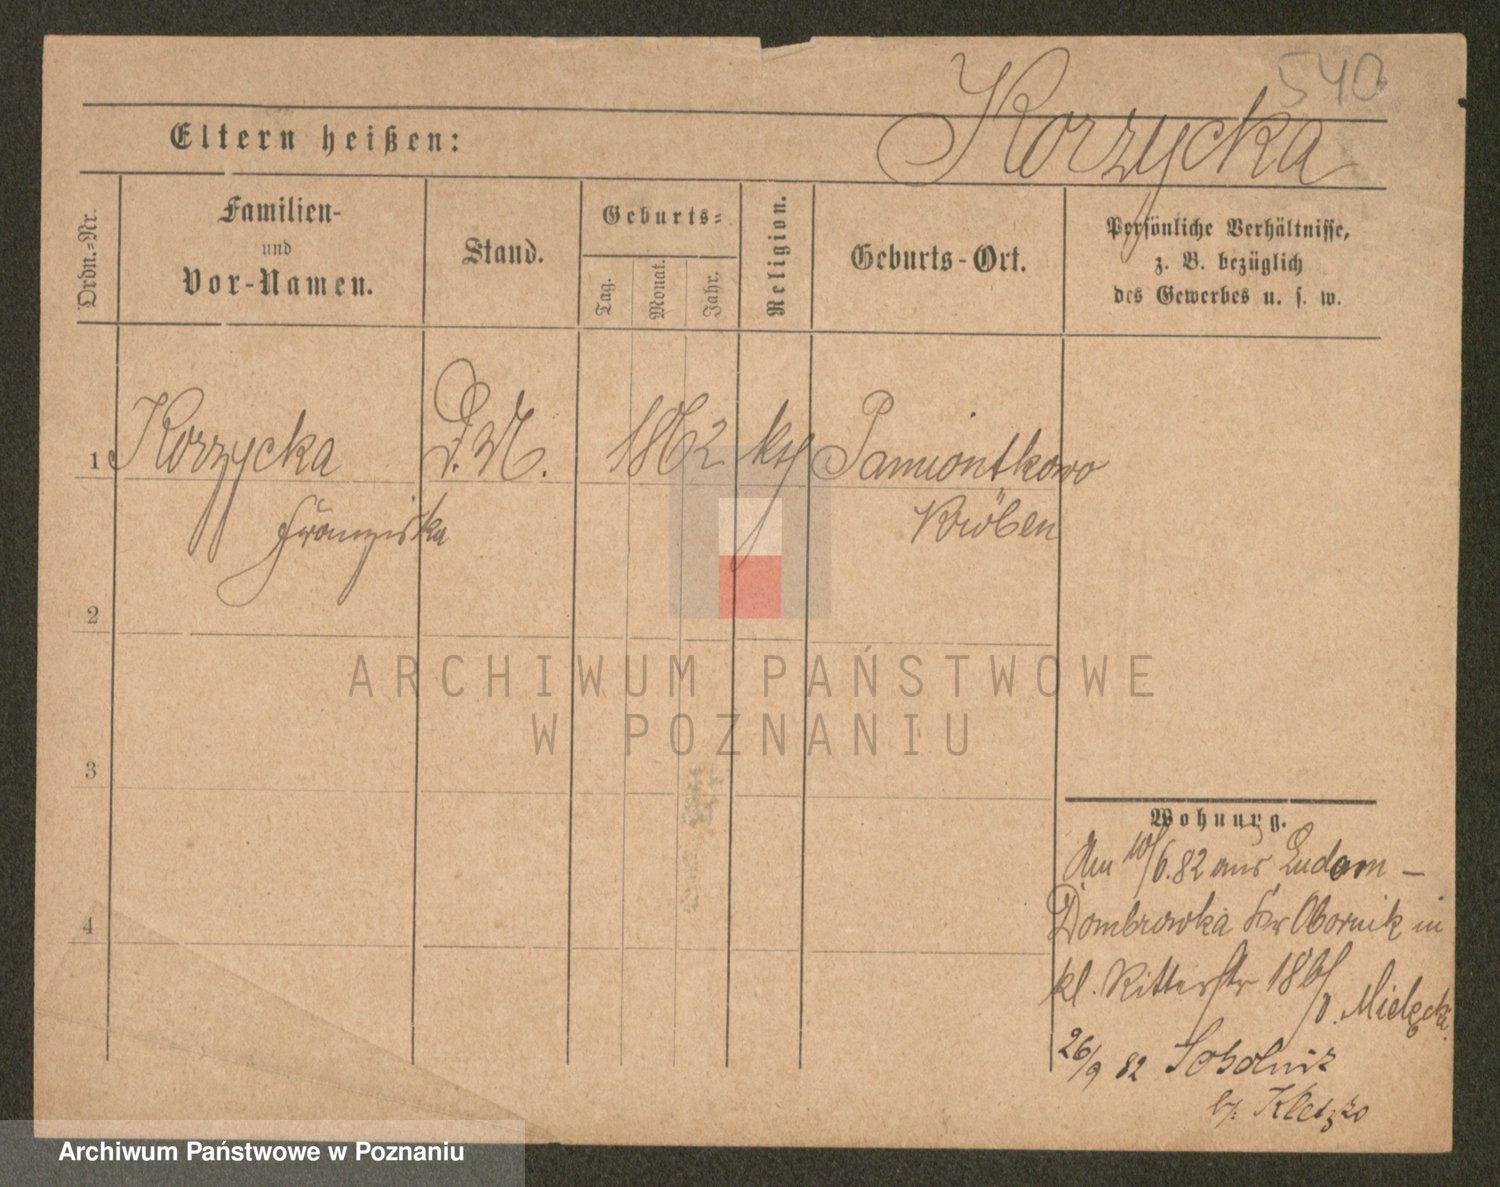 540
Korzycka
Eltern heißen:
Ordn.=Nr.
Familien-
und
Vor-Namen.
Stand.
Geburts=
Tag.
Monat.
Jahr.
Religion.
Geburts-Ort.
Persönliche Verhältnisse,
z. B. bezüglich
des Gewerbes u. s. w.
1
Korzycka
D. M.
1862
kth
Pamiontkowo
Franziska
Kröben
2
3
4
Wohnung.
Am 10/6.82 aus Ludom –
Dombrowka Kr Obornik in
kl. Ritterstr 18 b/
v. Mielęcki.
26/9 82 Sokolnik
b/. Kletzko
ARCHIWUM PAŃSTWOWE
W POZNANIU
Archiwum Państwowe w Poznaniu